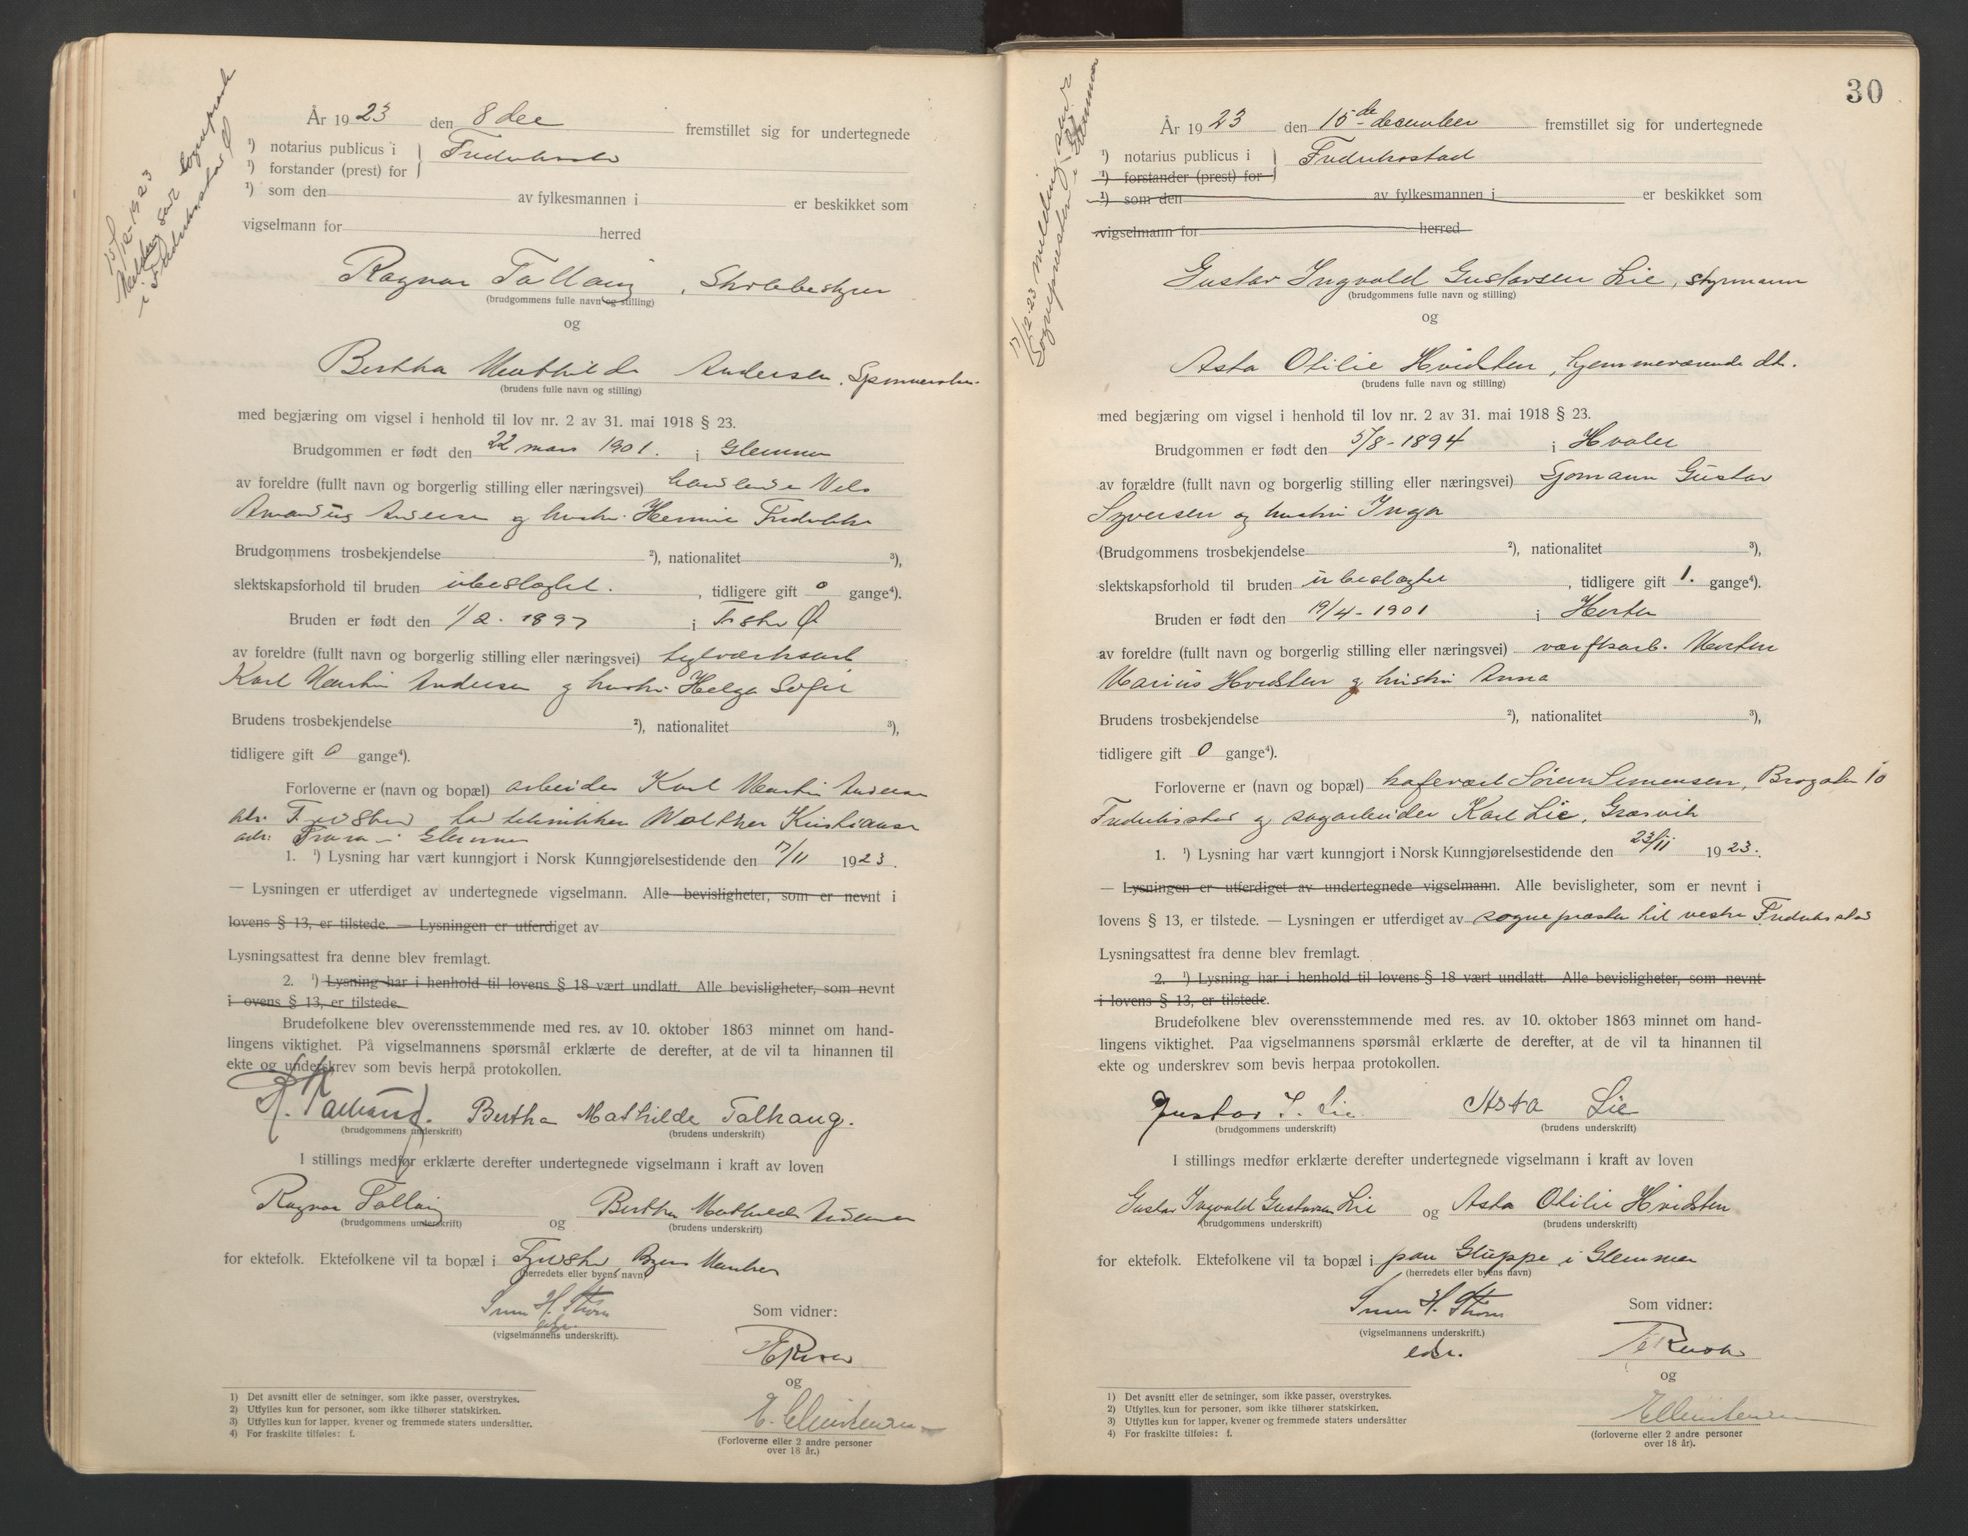 15/12-1923
Melding sendt sogneprest
i Fredrikstad Ø
År 1923 den 8 dec fremstillet sig for undertegnede
¹) notarius publicus i } Fredrikstad
¹) forstander (prest) for
¹) som den av fylkesmannen i er beskikket som
vigselmann for herred
Ragnar Tallaug, Skolebestyrer
(brudgommens fulle navn og stilling)
og
Bertha Mathilde Andersen,
(brudens fulle navn og stilling)
med begjæring om vigsel i henhold til lov nr. 2 av 31. mai 1918 § 23.
Brudgommen er født den 22 mars 1901. i Glemmen
av foreldre (fullt navn og borgerlig stilling eller næringsvei) handlende Nels
Amandus Andersen og hustru Hermine Fredrikke
Brudgommens trosbekjendelse ²), nationalitet ³),
slektskapsforhold til bruden ubeslægtet. , tidligere gift 0 gange⁴).
Bruden er født den 1/2 - 1897 i Fr.stad Ø
av foreldre (fullt navn og borgerlig stilling eller næringsvei) teglverksarb.
Karl Martin Andersen og hustru Helga Sofie
Brudens trosbekjendelse ²), nationalitet ³),
tidligere gift 0 gange⁴).
Forloverne er (navn og bopæl) arbeider Karl Martin Andersen
adr. teknikker Walther Kristiansen
adr: Trara i Glemmen
1. ¹) Lysning har vært kunngjort i Norsk Kunngjørelsestidende den 17/11 1923.
— Lysningen er utferdiget av undertegnede vigselmann. Alle bevisligheter, som er nevnt i
lovens § 13, er tilstede. — Lysningen er utferdiget av
Lysningsattest fra denne blev fremlagt.
2. ¹) Lysning har i henhold til lovens § 18 vært undlatt. Alle bevisligheter, som nevnt
i lovens § 13, er tilstede.
Brudefolkene blev overensstemmende med res. av 10. oktober 1863 minnet om hand-
lingens viktighet. På vigselmannens spørsmål erklærte de derefter, at de vil ta hinannen til
ekte og underskrev som bevis herpå protokollen.
R. Talhaug. Bertha Mathilde Talhaug.
(brudgommens underskrift) (brudens underskrift)
I stillings medfør erklærte derefter undertegnede vigselmann i kraft av loven
Ragnar Tallaug og Bertha Mathilde Andersen
(brudgommens underskrift) (brudens underskrift)
for ektefolk. Ektefolkene vil ta bopæl i
(herredets eller byens navn)
H. Thorn
(vigselmannens underskrift).
Som vidner:
og
E. Christensen
(Forloverne eller 2 andre personer
over 18 år.)
1) Det avsnitt eller de setninger, som ikke passer, overstrykes.
2) Utfylles kun for personer, som ikke tilhører statskirken.
3) Utfylles kun for lapper, kvener og fremmede staters undersåtter.
4) For fraskilte tilføies: f.
30
17/12-23 melding sendt
Sognepresten i Glemmen
År 1923 den 15de december fremstillet sig for undertegnede
¹) notarius publicus i } Fredrikstad
¹) forstander (prest) for
¹) som den av fylkesmannen i er beskikket som
vigselmann for herred
Gustav Ingvald Gustavsen Lie, styrmann
(brudgommens fulle navn og stilling)
og
Asta Otilie Hvidsten, hjemmeværende dtr.
(brudens fulle navn og stilling)
med begjæring om vigsel i henhold til lov nr. 2 av 31. mai 1918 § 23.
Brudgommen er født den 5/8 - 1894 i Hvaler
av forældre (fullt navn og borgerlig stilling eller næringsvei) Sjømann Gustav
Syversen og hustru Inga
(Brudgommens trosbekjendelse ²), nationalitet ³),
slektskapsforhold til bruden ubeslægtet , tidligere gift 1. gange⁴).
Bruden er født den 19/4 - 1901 i Horten
av foreldre (fullt navn og borgerlig stilling eller næringsvei) værftsarb. Morten
Marius Hvidsten og hustru Anna
Brudens trosbekjendelse ²), nationalitet ³),
tidligere gift 0 gange⁴).
Forloverne er (navn og bopæl) kafevært Sören Simensen, Brogaten 10
Fredrikstad og sagarbeider Karl Lie, Græsvik
1. ¹) Lysning har vært kunngjort i Norsk Kunngjørelsestidende den 23/11 1923.
— Lysningen er utferdiget av undertegnede vigselmann. Alle bevisligheter, som er nevnt i
lovens § 13, er tilstede. — Lysningen er utferdiget av sognepræsten til vestre Fredrikstad
Lysningsattest fra denne blev fremlagt.
2. ¹) Lysning har i henhold til lovens § 18 vært undlatt. Alle bevisligheter, som nevnt
i lovens § 13, er tilstede.
Brudefolkene blev overensstemmende med res. av 10. oktober 1863 minnet om hand-
lingens viktighet. Paa vigselmannens spørsmål erklærte de derefter, at de vil ta hinannen til
ekte og underskrev som bevis herpaa protokollen.
Gustav I. Lie. Asta Lie
(brudgommens underskrift) (brudens underskrift)
I stillings medfør erklærte derefter undertegnede vigselmann i kraft av loven
Gustav Ingvald Gustavsen Lie og Asta Otilie Hvidsten
(brudgommens underskrift) (brudens underskrift)
for ektefolk. Ektefolkene vil ta bopæl i paa Gluppe i Glemmen
(herredets eller byens navn)
H. Thorn
(vigselmannens underskrift.)
Som vidner:
og
E Christensen
(forloverne eller 2 andre personer
over 18 år).
1) Det avsnitt eller de setninger, som ikke passer, overstrykes.
2) Utfylles kun for personer, som ikke tilhører statskirken.
3) Utfylles kun for lapper, kvener og fremmede staters undersåtter
4) For fraskilte tilføies: f.